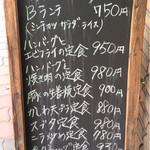 Bランチ 750円
(ミンチカツ サラダ ライス)
ハンバーグと
エビフライの定食 950円
ハンバーグと
焼き肉の定食 980円
豚の生姜焼定食 900円
かしわ天キラ定食 880円
スブタ定食 980円
定食 780円
930